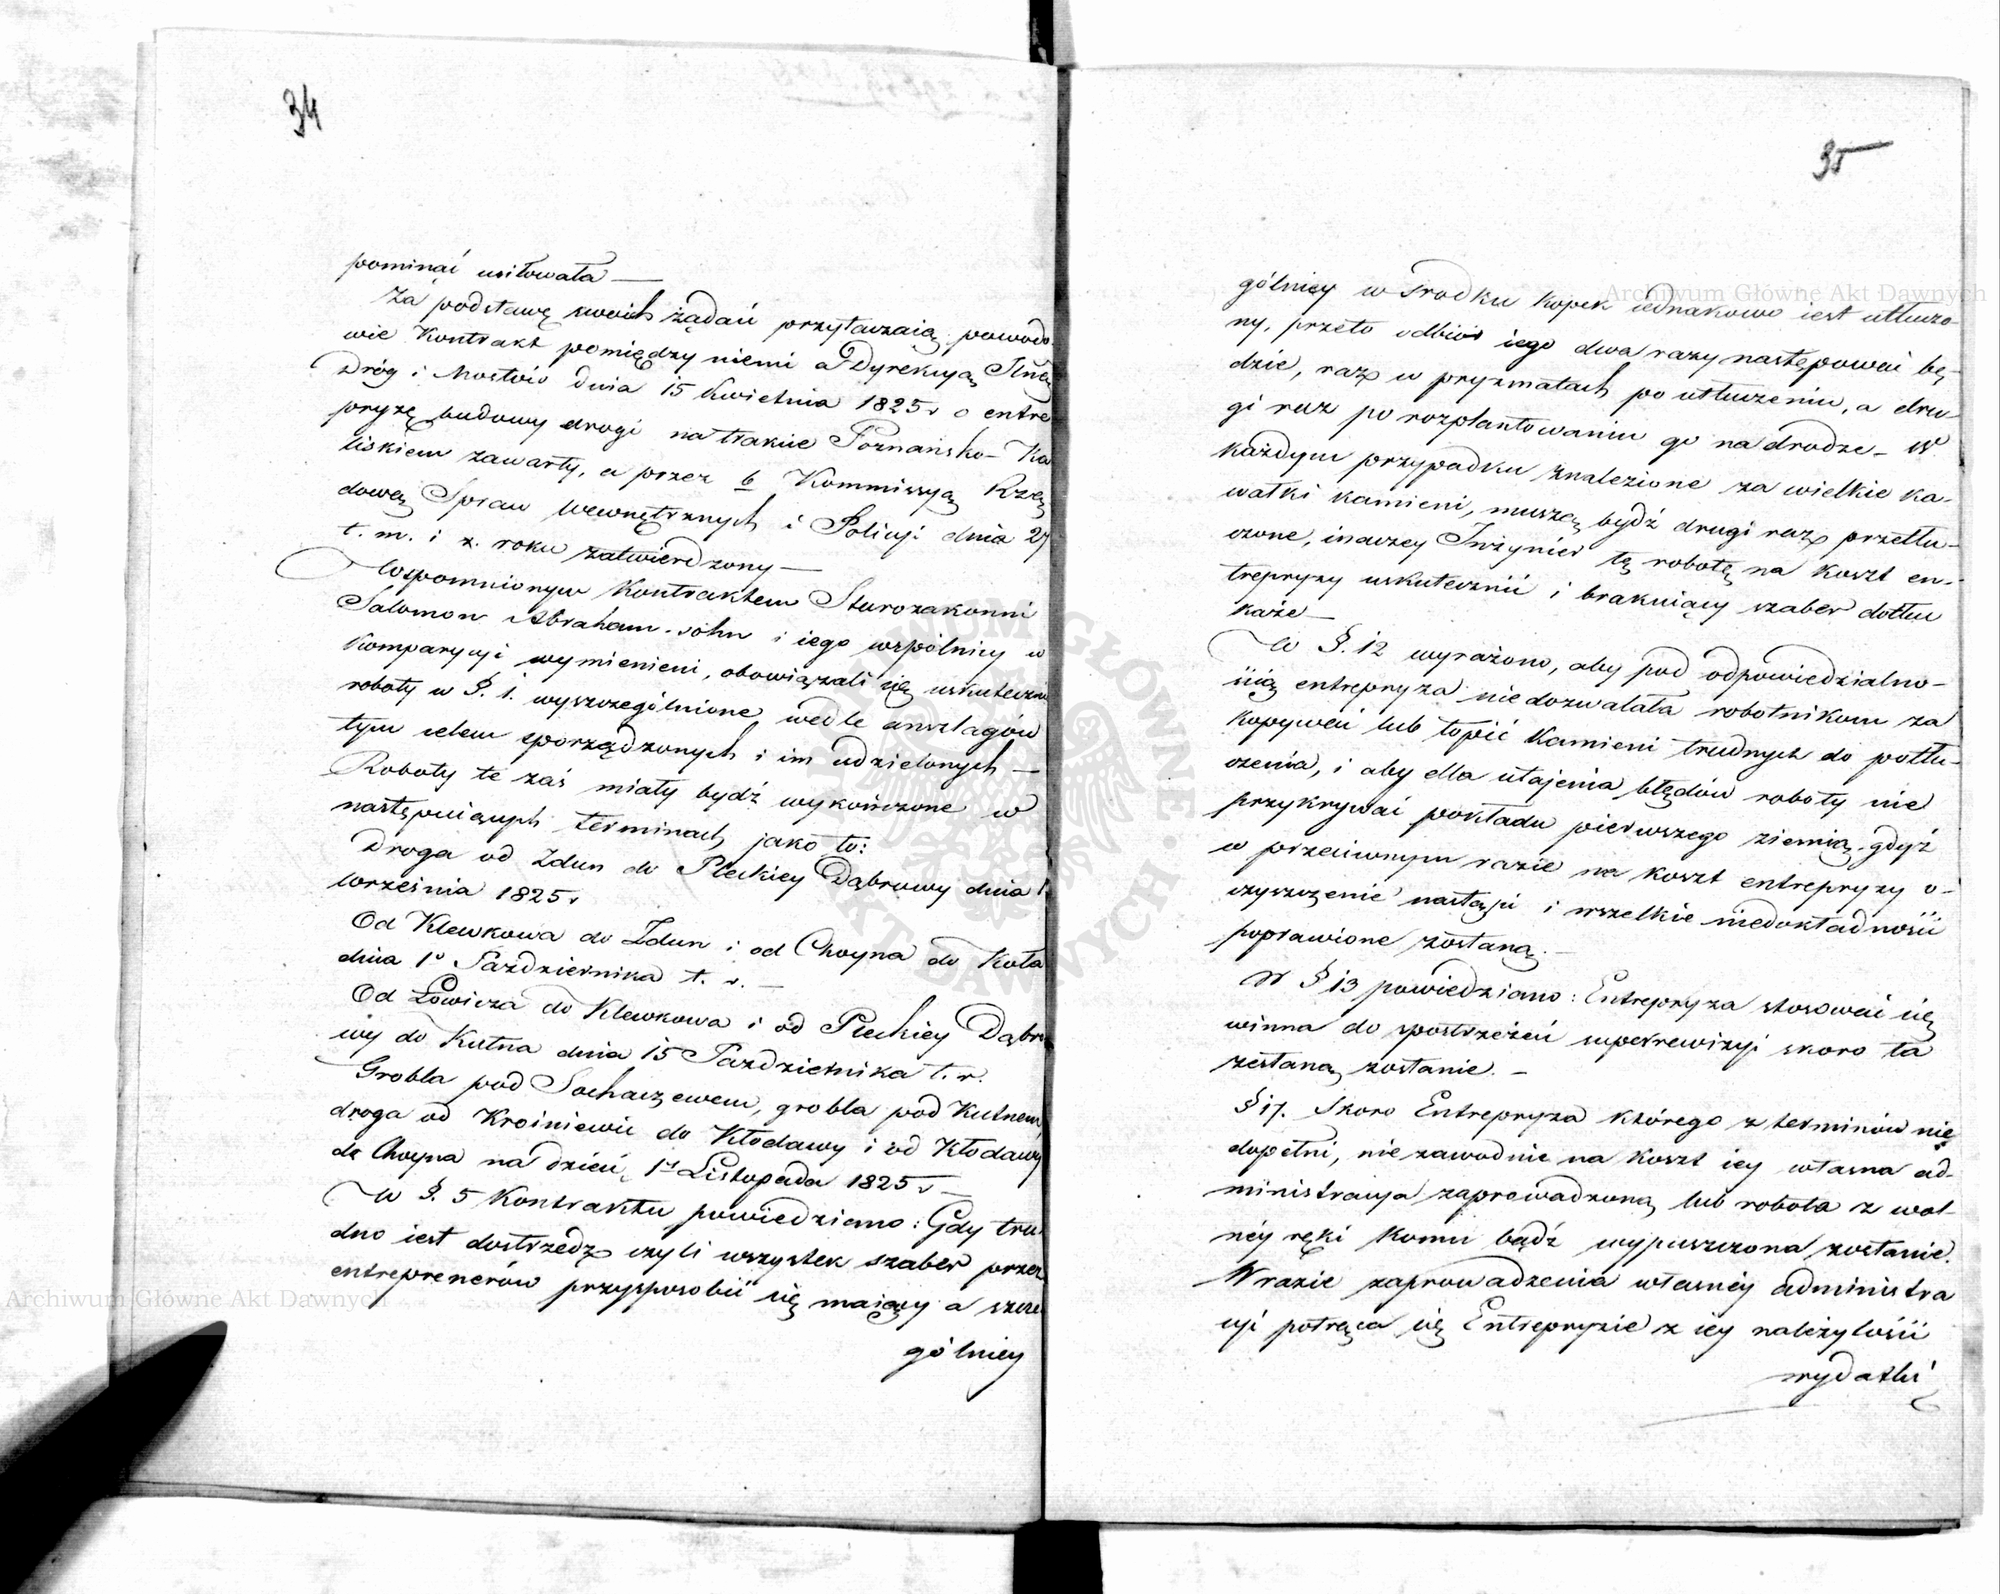 34
pominać usiłowała —
Za podstawę swoich żądań przytaczaią powodo-
wie Kontrakt pomiędzy niemi a Dyrekcyą Jlną
Dróg i Mostów dnia 15 Kwietnia 1825 r o entre
pryzę budowy drogi na trakcie Poznańsko-Ka
liskiem zawarty, a przez b Kommissyą Rzą
dową Spraw Wewnętrznych i Policyi dnia 27
t. m. i z. roku zatwierdzony —
Wspomnionym Kontraktem Starozakonni
Salomon Abraham-sohn i iego wspólnicy w
Komparycyi wymienieni, obowiązali się uskuteczni
roboty w §. 1. wyszczególnione, wedle anszlagów
tym celem sporządzonych i im udzielonych —
Roboty te zaś miały bydź wykończone w
następuiących terminach, jako to:
Droga od Zdun do Pleckiey Dąbrowy dnia 1
Września 1825 r
Od Klewkowa do Zdun i od Choyna do Koła
dnia 1o Października t. r. —
Od Łowicza do Klewkowa i od Pleckiey Dąbro
wy do Kutna dnia 15 Października t. r.
Grobla pod Sochaczewem, grobla pod Kutnem,
droga od Krośniewic do Kłodawy i od Kłodawy
do Choyna na dzień 1o Listopada 1825 r —
W §. 5 Kontraktu powiedziano: Gdy tru
dno iest dostrzedz czyli wszystek szaber przez
entreprenerów przysposobić się maiący a szcze
gólniey
35
gólniey w srodku kopek iednakowo iest utłuczo-
ny, przeto odbiór iego dwa razy następować bę-
dzie, raz w pryzmatach po utłuczeniu, a dru-
gi raz po rozplantowaniu go na drodze — W
każdym przypadku znalezione za wielkie ka-
wałki kamieni, muszą bydź drugi raz przetłu-
czone, inaczey Inżynier tę robotę na koszt en-
trepryzy uskutecznić i brakuiący szaber dotłuc
każe —
W §. 12 wyrażono, aby pod odpowiedzialno-
ścią entrepryza niedozwalała robotnikom za
kopywać lub topić kamieni trudnych do potłu-
czenia, i aby dla utajenia błędów roboty nie
przykrywać pokładu pierwszego ziemią, gdyż
w przeciwnym razie na koszt entrepryzy o-
czyszczenie nastąpi i wszelkie niedokładności
poprawione zostaną. —
W § 13 powiedziano: Entrepryza stosować się
winna do spostrzeżeń superrewizyi skoro ta
zesłaną zostanie. —
§ 17. Skoro Entrepryza którego z terminów nie
dopełni, niezawodnie na koszt iey własna ad-
ministracya zaprowadzoną lub robota z wol-
néy ręki komu bądź wypuszczona zostanie.
W razie zaprowadzenia własnéy administra
cyi potrąca się Entrepryzie z iey należytości
wydatki
Archiwum Główne Akt Dawnych
Archiwum Główne Akt Dawnych
ARCHIWUM GŁÓWNE AKT DAWNYCH